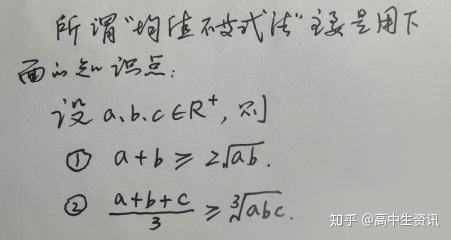 所谓“均值不等式法”主要是用下
面的知识点:
设 a、b、c∈R⁺, 则
① a+b ≥ 2√ab.
② (a+b+c)/3 ≥ ∛abc.
知乎 @高中生资讯